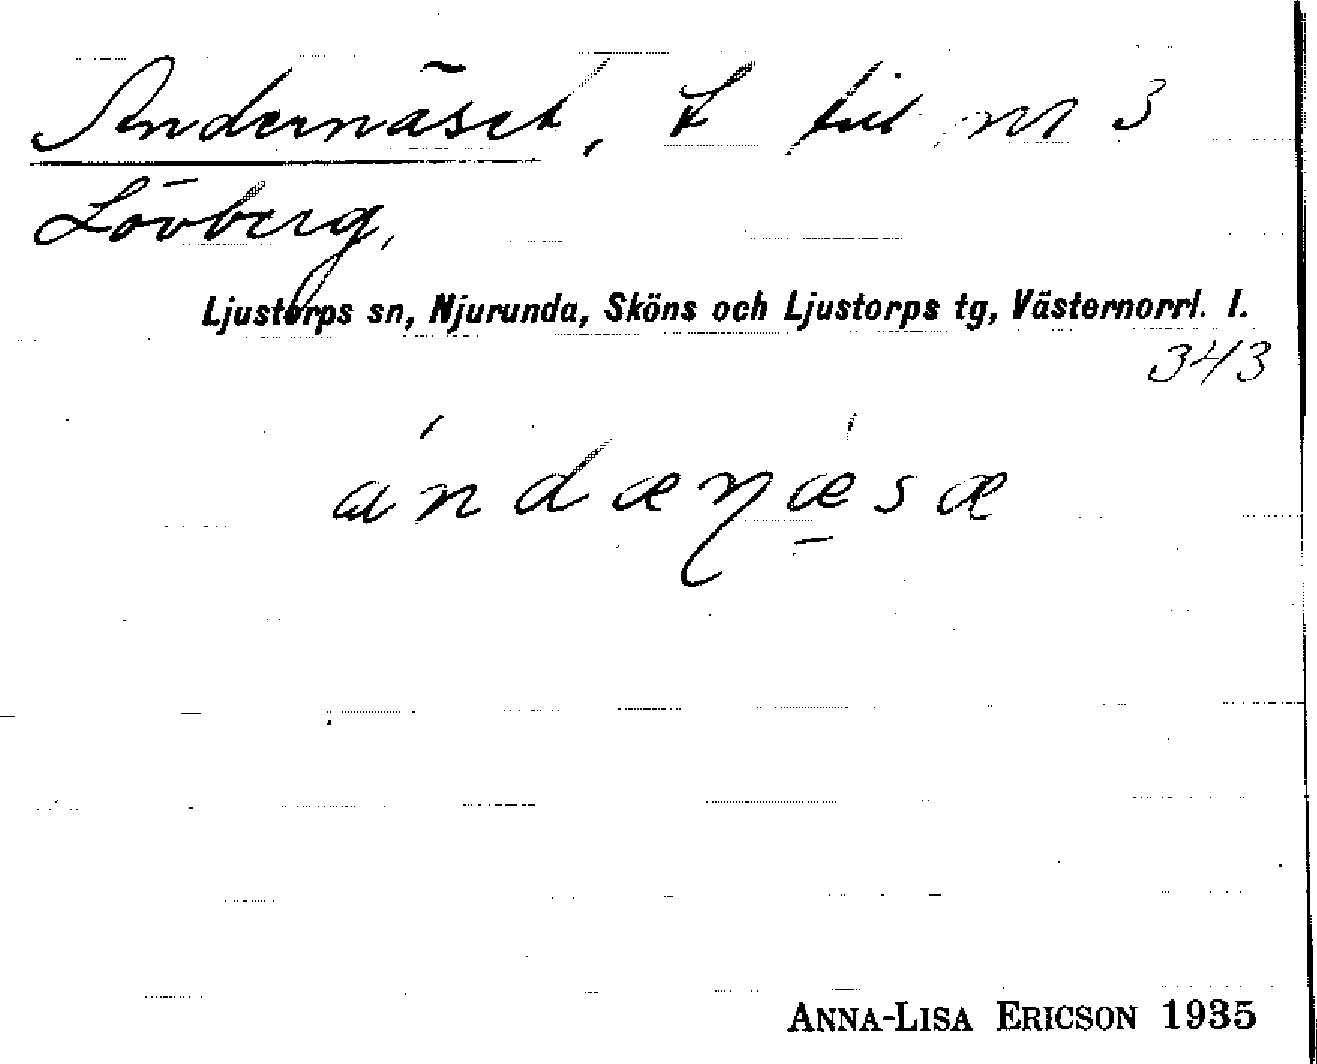 Andernäset, L till nr 3
Lövberg,
Ljustorps sn, Njurunda, Sköns och Ljustorps tg, Västernorrl. l.
343
ándæɳǽ̠sæ
ANNA-LISA ERICSON 1935